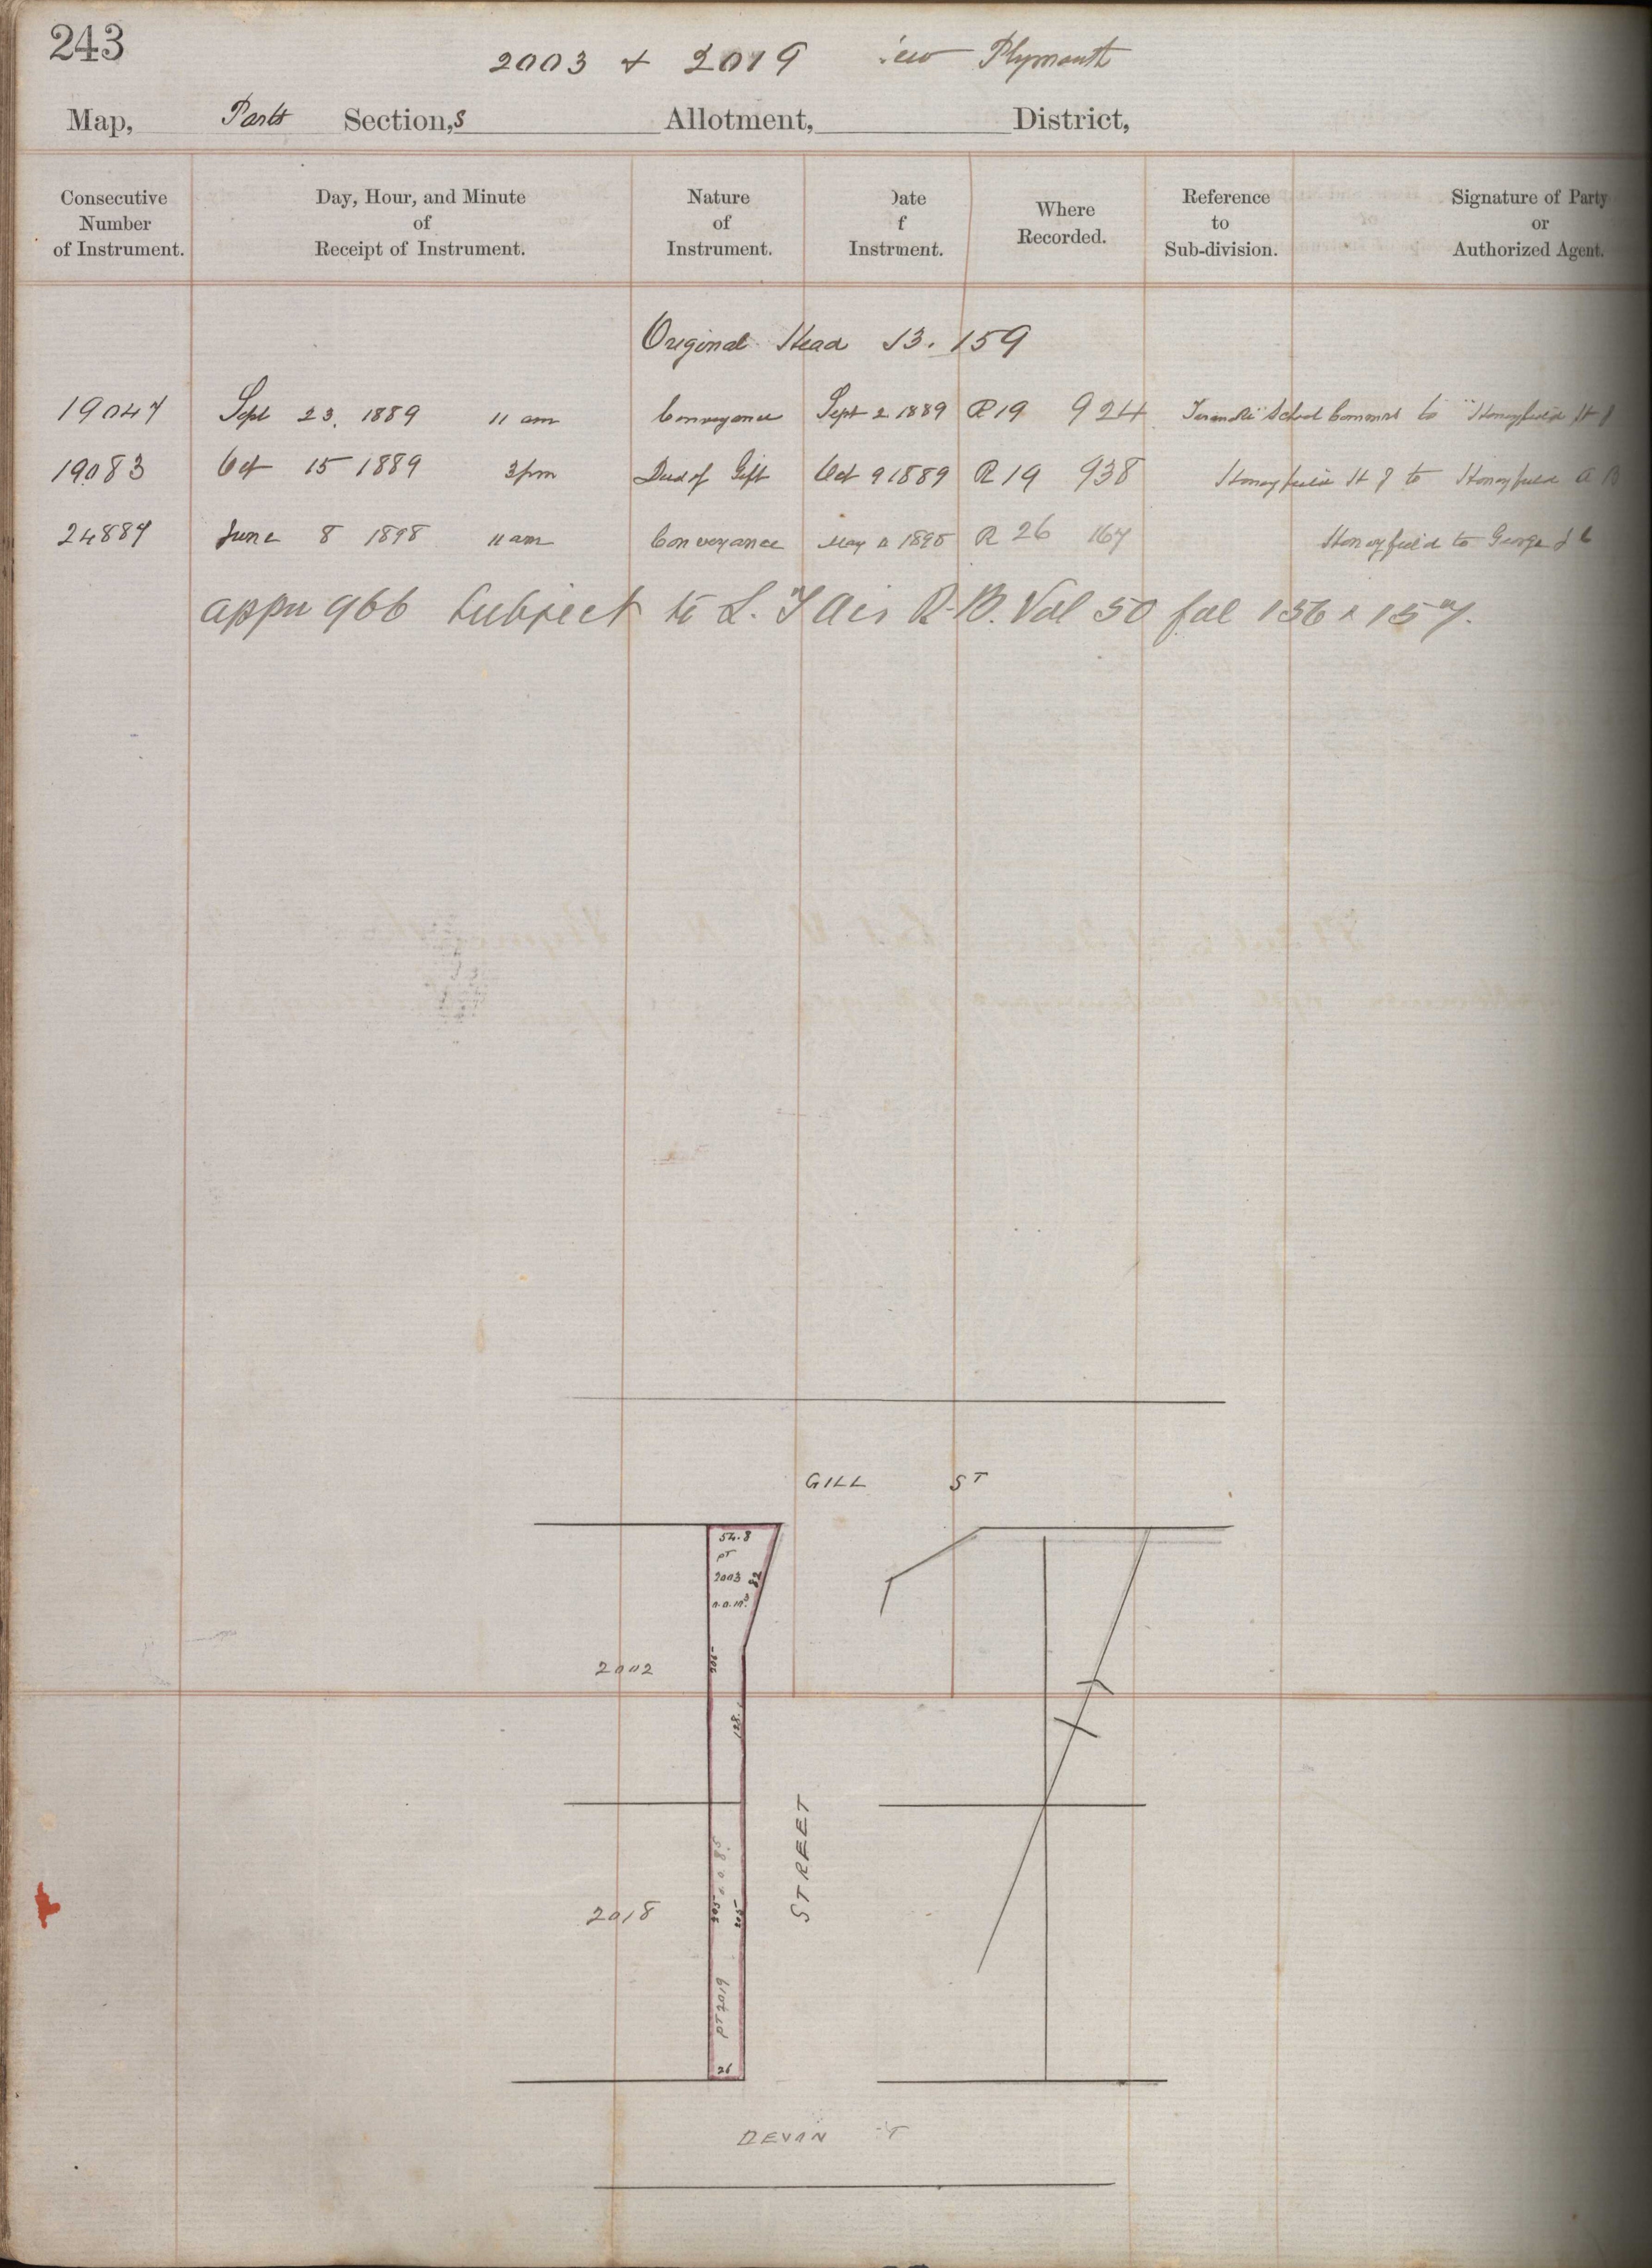 243
2003 & 2019 ew Plymouth
Map, Parts Section,s Allotment, District,
Consecutive Number of Instrument. Day, Hour, and Minute of Receipt of Instrument. Nature of Instrument. Date f Instrment. Where Recorded. Reference to Sub-division. Signature of Party or Authorized Agent.
Original Head 13. 159
19047 Sept 23. 1889 11 am Conveyance Sept 2 1889 R 19 924 School Commrs to Honeyfield H J
19083 Oct 15 1889 3 pm Deed of Gift Oct 9 1889 R 19 938 Honeyfield H J to Honeyfield A B
24887 June 8 1898 11 am Conveyance May R 26 167 Honeyfield to George J C
appn 966 Subject to L. R.B. Vol 50 fol 156 & 157.
GILL ST
54.8
PT
2003
82
206
2002
128.
STREET
2018
0.0.8.5
205
205
PT 2019
26
DEVON T